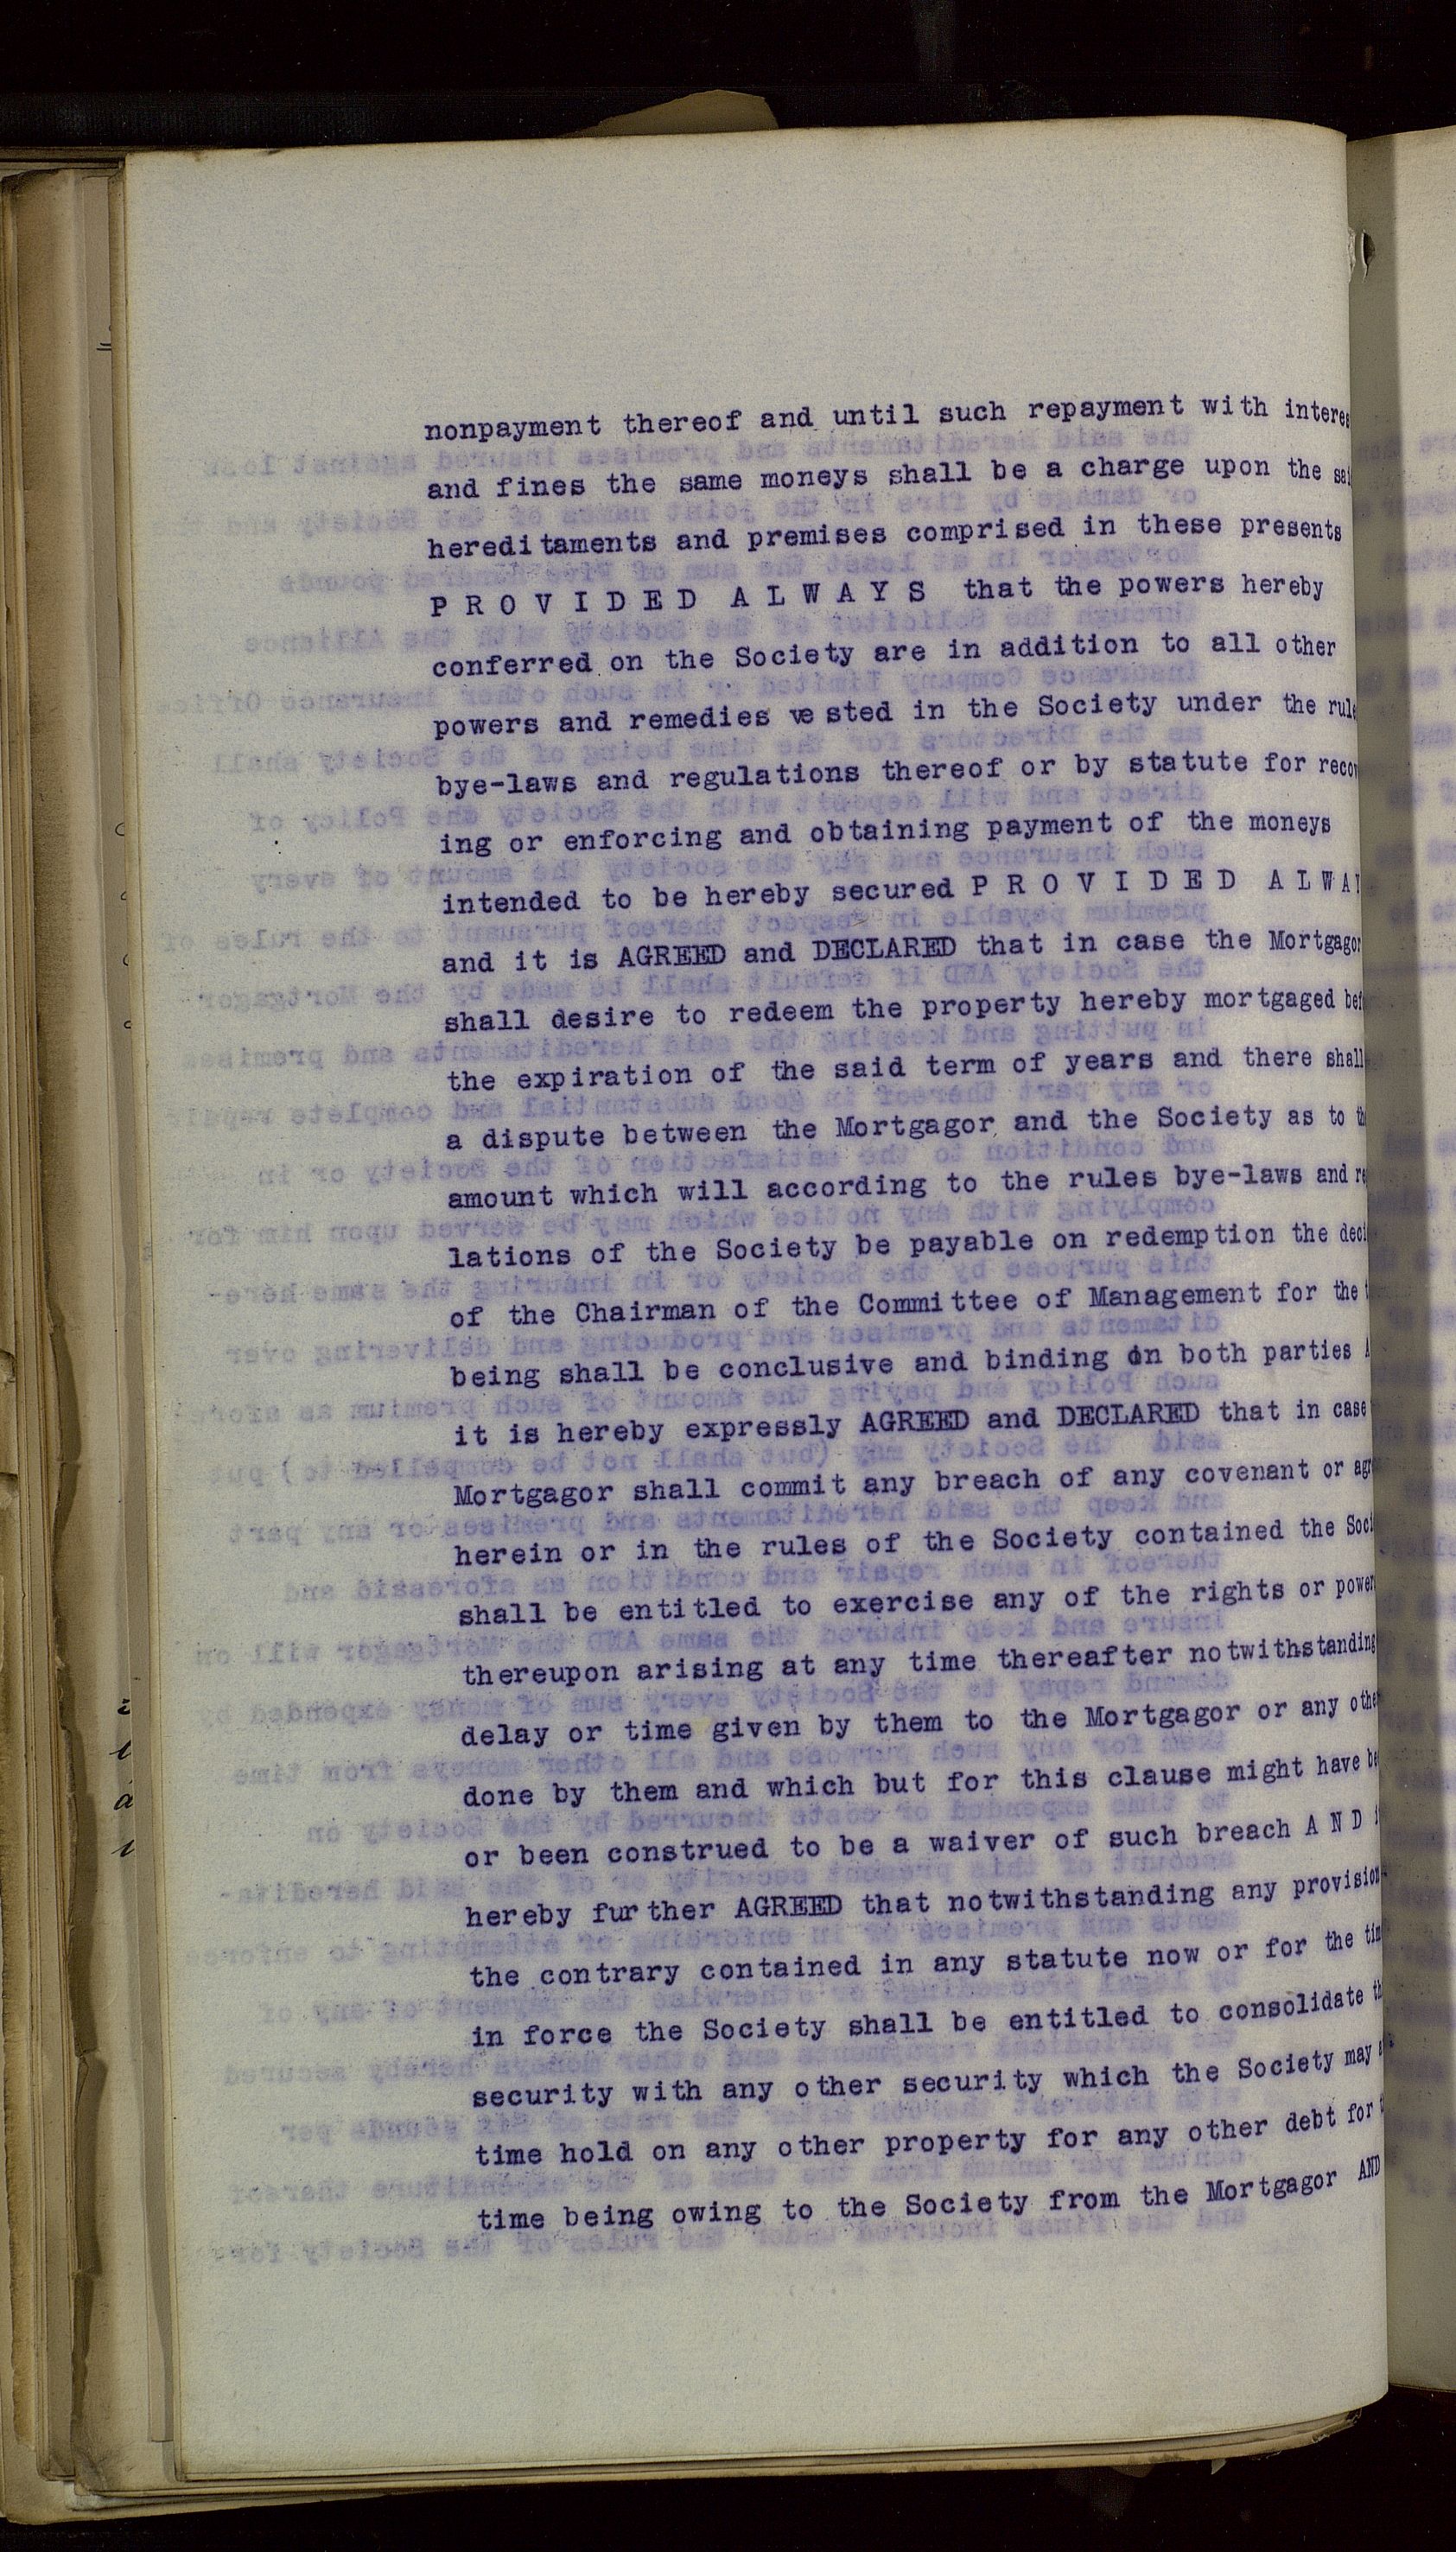 nonpayment thereof and until such repayment with interes
and fines the same moneys shall be a charge upon the sai
hereditaments and premises comprised in these presents
P R O V I D E D A L W A Y S that the powers hereby
conferred on the Society are in addition to all other
powers and remedies vested in the Society under the rule
bye-laws and regulations thereof or by statute for recov
ing or enforcing and obtaining payment of the moneys
intended to be hereby secured P R O V I D E D A L W A Y
and it is AGREED and DECLARED that in case the Mortgagor
shall desire to redeem the property hereby mortgaged bef
the expiration of the said term of years and there shall
a dispute between the Mortgagor and the Society as to th
amount which will according to the rules bye-laws and re
lations of the Society be payable on redemption the deci
of the Chairman of the Committee of Management for the t
being shall be conclusive and binding on both parties A
it is hereby expressly AGREED and DECLARED that in case
Mortgagor shall commit any breach of any covenant or agr
herein or in the rules of the Society contained the Soci
shall be entitled to exercise any of the rights or power
thereupon arising at any time thereafter notwithstanding
delay or time given by them to the Mortgagor or any othe
done by them and which but for this clause might have be
or been construed to be a waiver of such breach A N D i
hereby further AGREED that notwithstanding any provision
the contrary contained in any statute now or for the tim
in force the Society shall be entitled to consolidate th
security with any other security which the Society may a
time hold on any other property for any other debt for t
time being owing to the Society from the Mortgagor AND